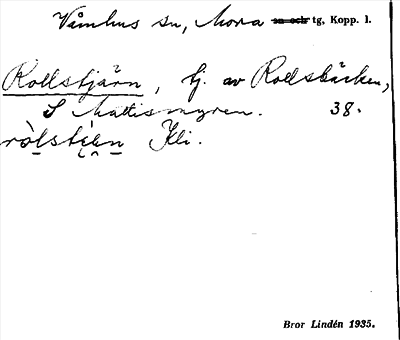 Våmhus sn, Mora sn och tg, Kopp. l.
Rollstjärn, tj. av Rollsbäcken,
S Mattismyren. 38.
ròlstjä̀n Kli.
Bror Lindén 1935.